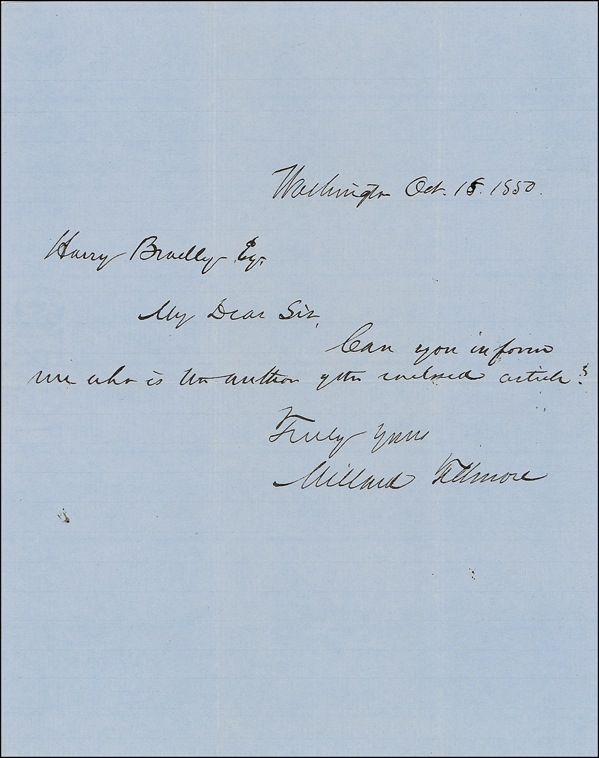 Washington Oct. 15. 1850.
Harry Bradley Esq.
My Dear Sir,
Can you inform
me who is the author of the enclosed article?
Truly Yours
Millard Fillmore